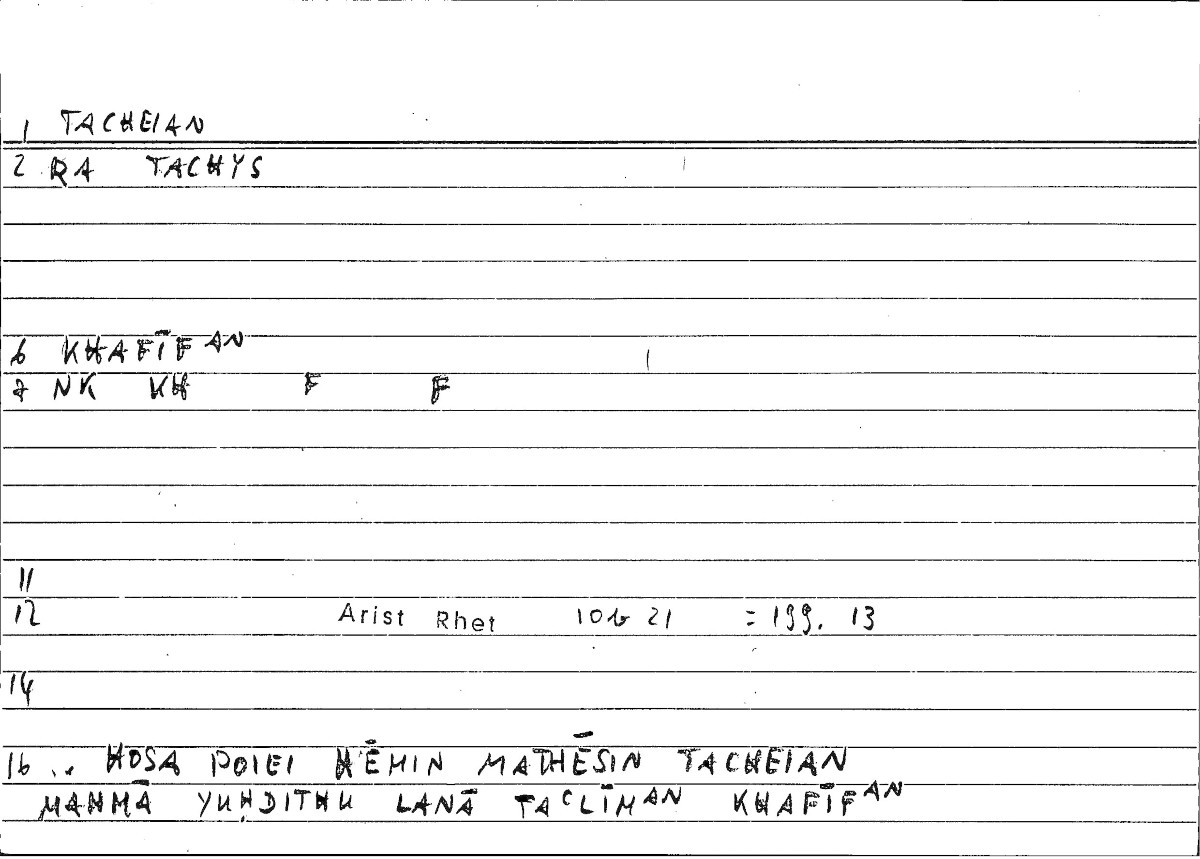 1 TACHEIAN
2 RA TACHYS
6 KHAFĪF AN
7 NK KH F F
11
12 Arist Rhet 10b 21 = 199. 13
14
16 .. HOSA POIEI HĒMIN MATHĒSIN TACHEIAN
MAHMĀ YUḤDITHU LANĀ TAᶜLĪMAN KHAFĪFAN